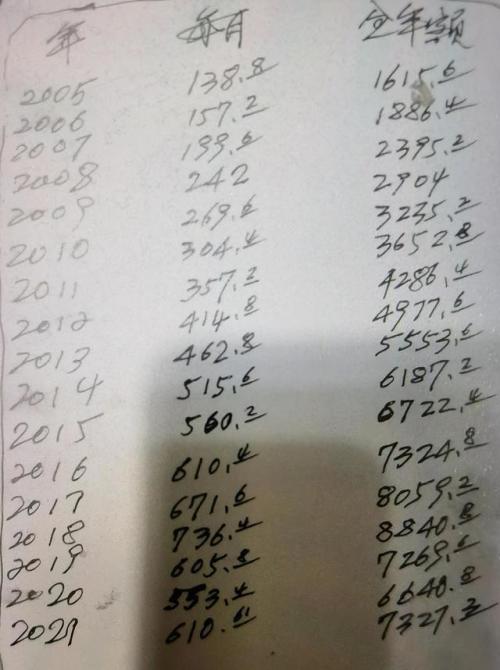 年 每月 全年额
2005 138.8 1615.6
2006 157.2 1886.4
2007 199.6 2395.2
2008 242 2904
2009 269.6 3235.2
2010 304.4 3652.8
2011 357.2 4286.4
2012 414.8 4977.6
2013 462.8 5553.6
2014 515.6 6187.2
2015 560.2 6722.4
2016 610.4 7324.8
2017 671.6 8059.2
2018 736.4 8840.8
2019 605.8 7269.6
2020 553.4 6640.8
2021 610.61 7327.2